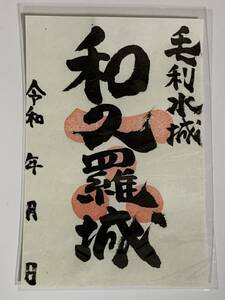 毛利水城
和久羅城
令和 年 月 日